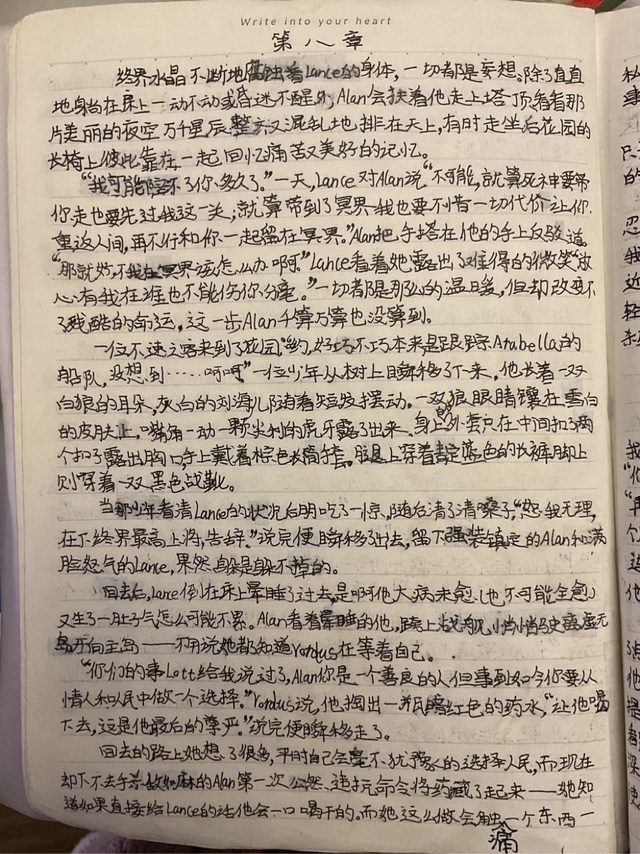 Write into your heart
第八章
终界水晶不断地腐蚀着Lance的身体，一切都是妄想。除了直直
地身尚在床上一动不动或昏迷不醒外，Alan会扶着他走上塔顶看看那
片美丽的夜空万千星辰整齐又混乱地排在天上，有时走坐后花园的
长椅上彼此靠在一起回忆痛苦又美好的记忆。
“我可能陪不了你多久了。”一天，Lance对Alan说“不可能，就算死神要带
你走也要先过我这一关；就算带到了冥界我也要不惜一切代价让你
重返人间，再不行和你一起留在冥界。”Alan把手搭在他的手上反驳道
“那就好不我在冥界该怎么办啊。”Lance看着她露出了难得的微笑“放
心有我在谁也不能伤你分毫。”一切都是那么的温暖，但却改变不
了残酷的命运，这一步Alan千算万算也没算到。
一位不速之客来到了花园“哟，好巧不巧本来是跟踪Arabella的
船队，没想到……呵呵”一位少年从树上瞬移了下来，他长着一双
白狼的耳朵，灰白的刘海儿随着短发摆动。一双狼眼睛镶在雪白
的皮肤上。嘴角一动一颗尖利的虎牙露了出来。身上的外套只在中间扣了两
个扣子露出胸口，手上戴着棕色长筒手套。腿上穿着靛蓝色的长裤脚上
则穿着一双黑色战靴。
当那少年看清Lance的状况后明吃了一惊，随后清了清嗓子“恕我无理，
在下终界最高上将，告辞。”说完便瞬移出去，留下强装镇定的Alan和满
脸怒气的Lance，果然躲是躲不掉的。
回去后，Lance倒在床上晕睡了过去是啊他大病未愈（也不可能全愈）
又生了一肚子气怎么可能不累。Alan看着晕睡的他，踏上战舰，悄悄驶离虚无
岛开向主岛——不用说她都知道Yordus在等着自己。
“你们的事Lott给我说过了，Alan你是一个善良的人但事到如今你要从
情人和人民中做一个选择。”Yordus说，他掏出一瓶暗红色的药水，“让他喝
下去，这是他最后的尊严。”说完便瞬移走了。
回去的路上她想了很多，平时自己会毫不犹豫的选择人民，而现在
却下不去手杀敌如麻的Alan第一次公然违抗命令将药藏了起来——她知
道如果直接给Lance的话他会一口喝干的。而她这么做会触痛一个东西一